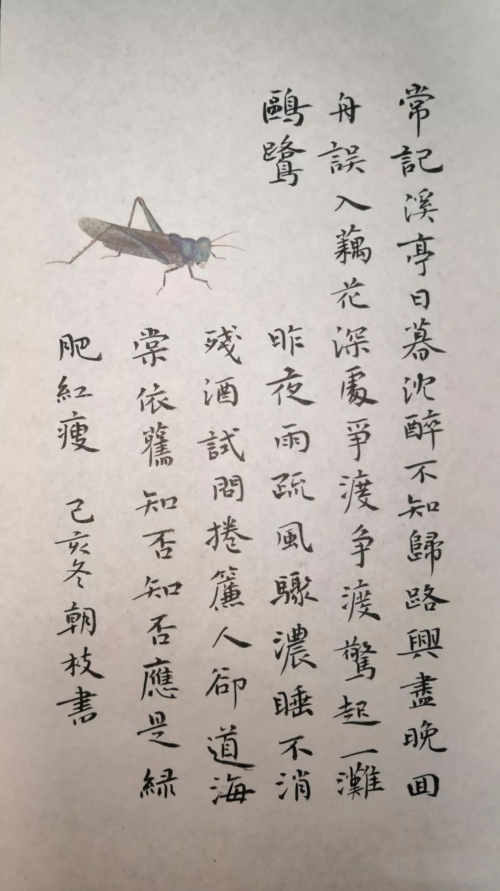 常記溪亭日暮沈醉不知歸路興盡晚回
舟誤入藕花深處爭渡争渡驚起一灘
鷗鷺
昨夜雨疏風驟濃睡不消
殘酒試問捲簾人卻道海
棠依舊知否知否應是緑
肥紅瘦 己亥冬朝枝書